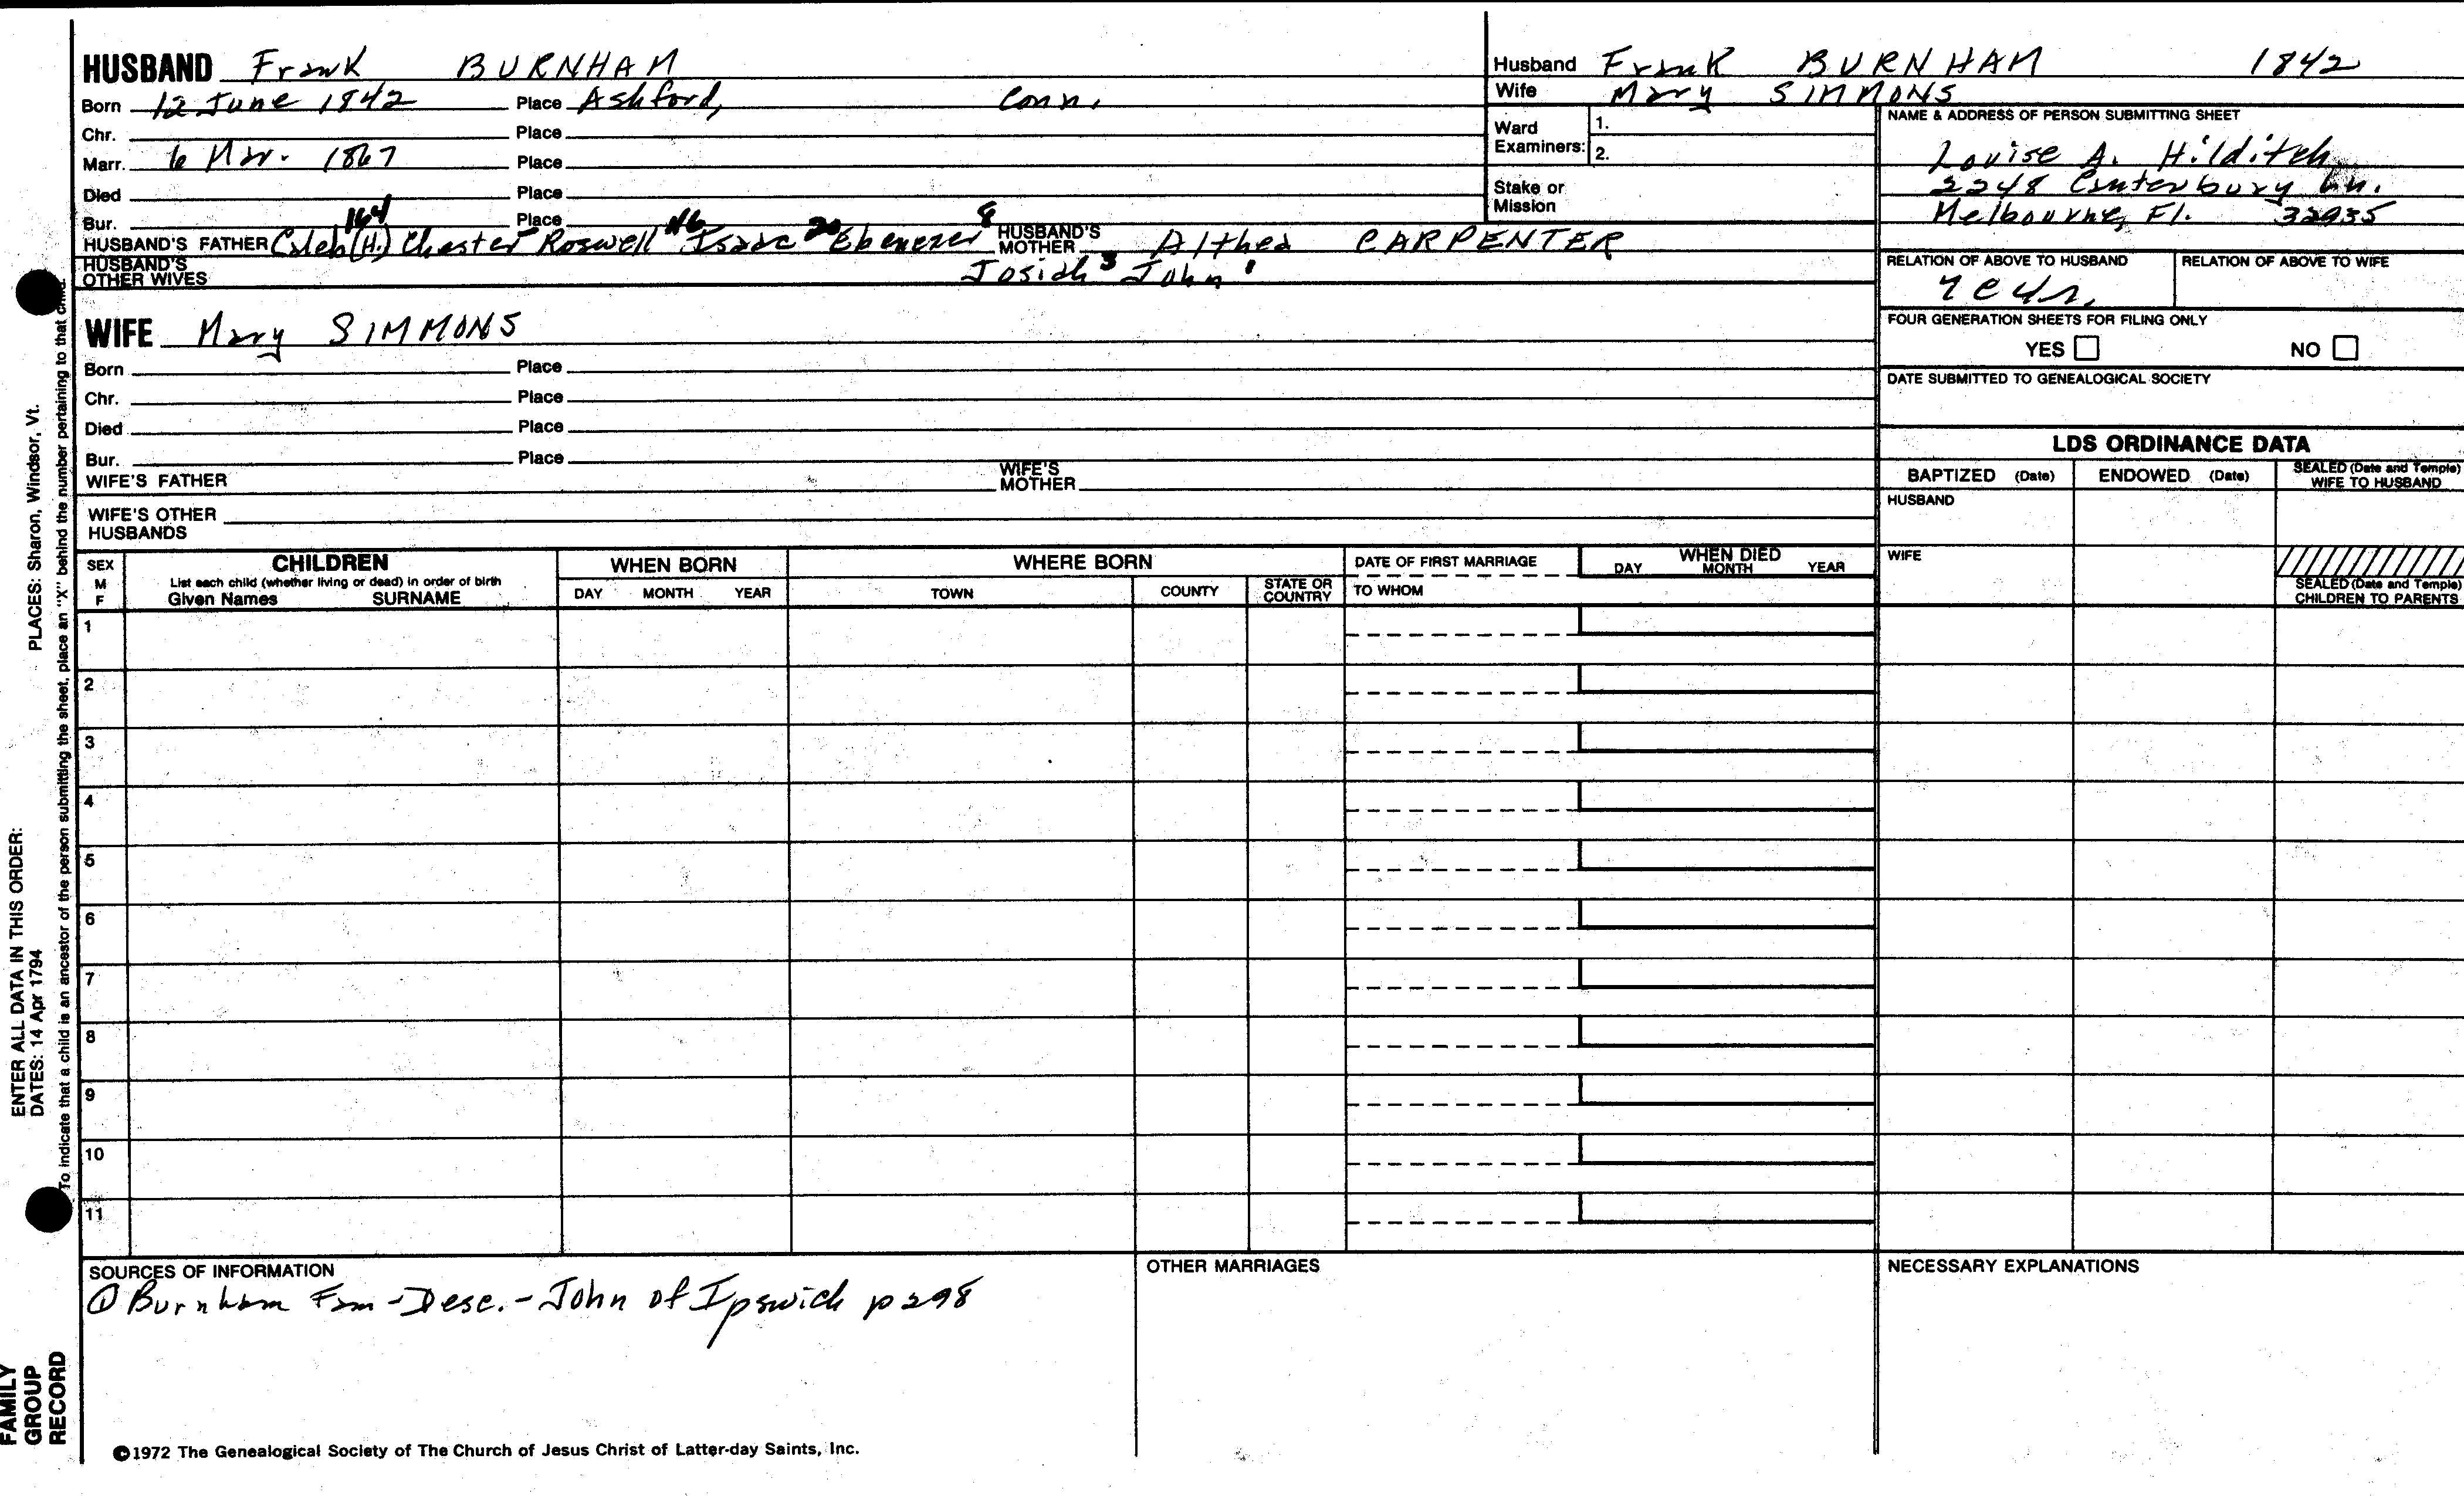 HUSBAND Frank BURNHAM
Born 12 June 1842 Place Ashford, Conn.
Chr. Place
Marr. 6 Mar. 1867 Place
Died Place
Bur. Place
164 46 20 8
HUSBAND'S FATHER Caleb (H.) Chester Roswell Isaac Ebenezer HUSBAND'S MOTHER Althea CARPENTER
HUSBAND'S OTHER WIVES Josiah 3 John 1
WIFE Mary SIMMONS
Born Place
Chr. Place
Died Place
Bur. Place
WIFE'S FATHER WIFE'S MOTHER
WIFE'S OTHER HUSBANDS
Husband Frank BURNHAM 1842
Wife Mary SIMMONS
Ward Examiners: 1.
2.
Stake or Mission
NAME & ADDRESS OF PERSON SUBMITTING SHEET
Louise A. Hilditch
2248 Canterbury Ln.
Melbourne, Fl. 32935
RELATION OF ABOVE TO HUSBAND RELATION OF ABOVE TO WIFE
FOUR GENERATION SHEETS FOR FILING ONLY
YES NO
DATE SUBMITTED TO GENEALOGICAL SOCIETY
LDS ORDINANCE DATA
BAPTIZED (Date) ENDOWED (Date) SEALED (Date and Temple) WIFE TO HUSBAND
HUSBAND
WIFE
SEALED (Date and Temple) CHILDREN TO PARENTS
SEX M F
CHILDREN
List each child (whether living or dead) in order of birth
Given Names SURNAME
WHEN BORN
DAY MONTH YEAR
WHERE BORN
TOWN COUNTY STATE OR COUNTRY
DATE OF FIRST MARRIAGE
TO WHOM
WHEN DIED
DAY MONTH YEAR
1
2
3
4
5
6
7
8
9
10
11
SOURCES OF INFORMATION
① Burnham Fam - Desc. - John of Ipswich p 298
OTHER MARRIAGES
NECESSARY EXPLANATIONS
©1972 The Genealogical Society of The Church of Jesus Christ of Latter-day Saints, Inc.
FAMILY GROUP RECORD
ENTER ALL DATA IN THIS ORDER:
DATES: 14 Apr 1794 PLACES: Sharon, Windsor, Vt.
To indicate that a child is an ancestor of the person submitting the sheet, place an "X" behind the number pertaining to that child.